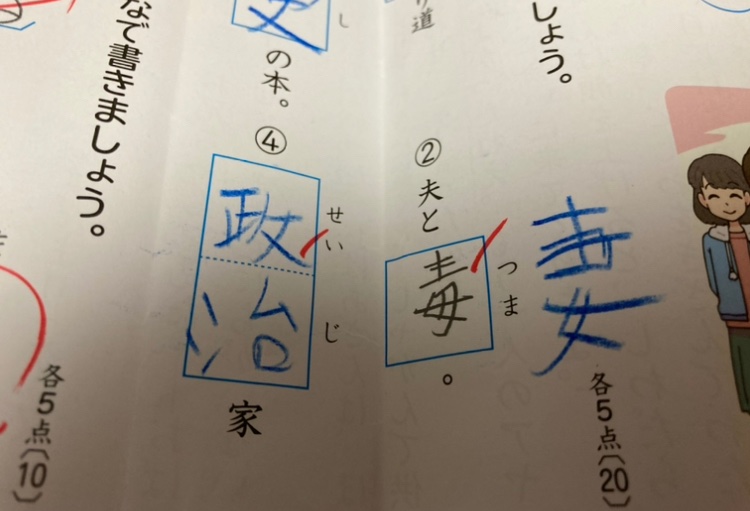 しょう。
各5点〔20〕
妻
②夫と毒。
つま
り道
の本。
し
④政治家
せいじ
なで書きましょう。
各5点〔10〕